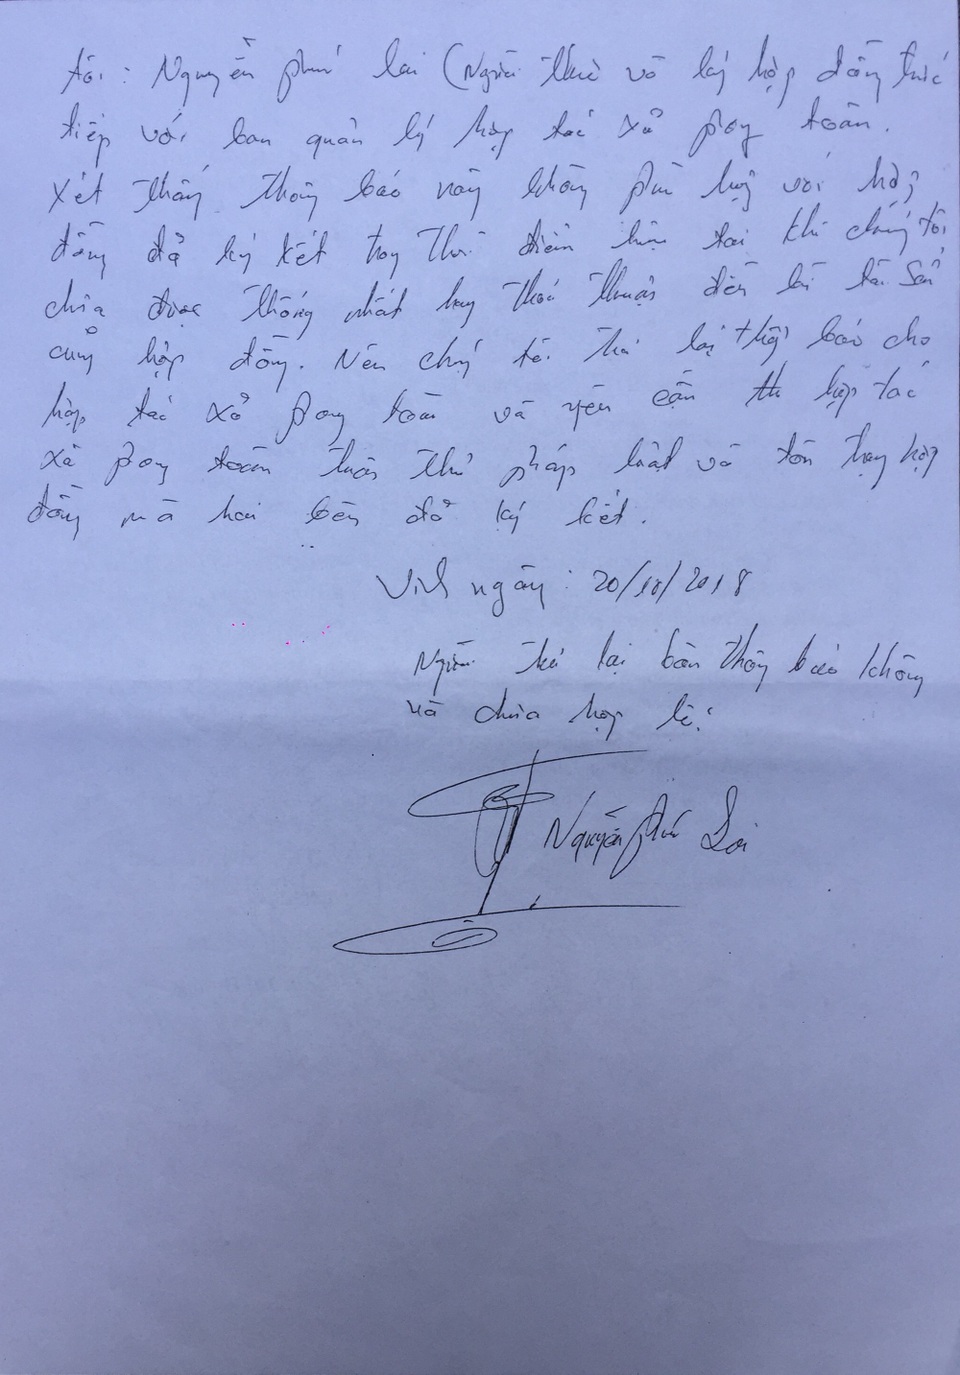 tôi: Nguyễn phú lai (Người thuê và ký hợp đồng trực
tiếp với ban quản lý hợp tác xã phong toàn.
xét thấy thông báo này không phù hợp với hợp
đồng đã ký kết trong thời điểm hiện tại khi chúng tôi
chưa được thống nhất hay thoả thuận đến tài sản
cùng hợp đồng. Nên chúng tôi trả lại thông báo cho
hợp tác xã phong toàn và yêu cầu hợp tác
xã phong toàn tuân thủ pháp luật và tôn trọng hợp
đồng mà hai bên đã ký kết.
Vinh ngày: 20/10/2018
Người trả lại bản thông báo không
và chưa hợp lệ!
Nguyễn phú Lai